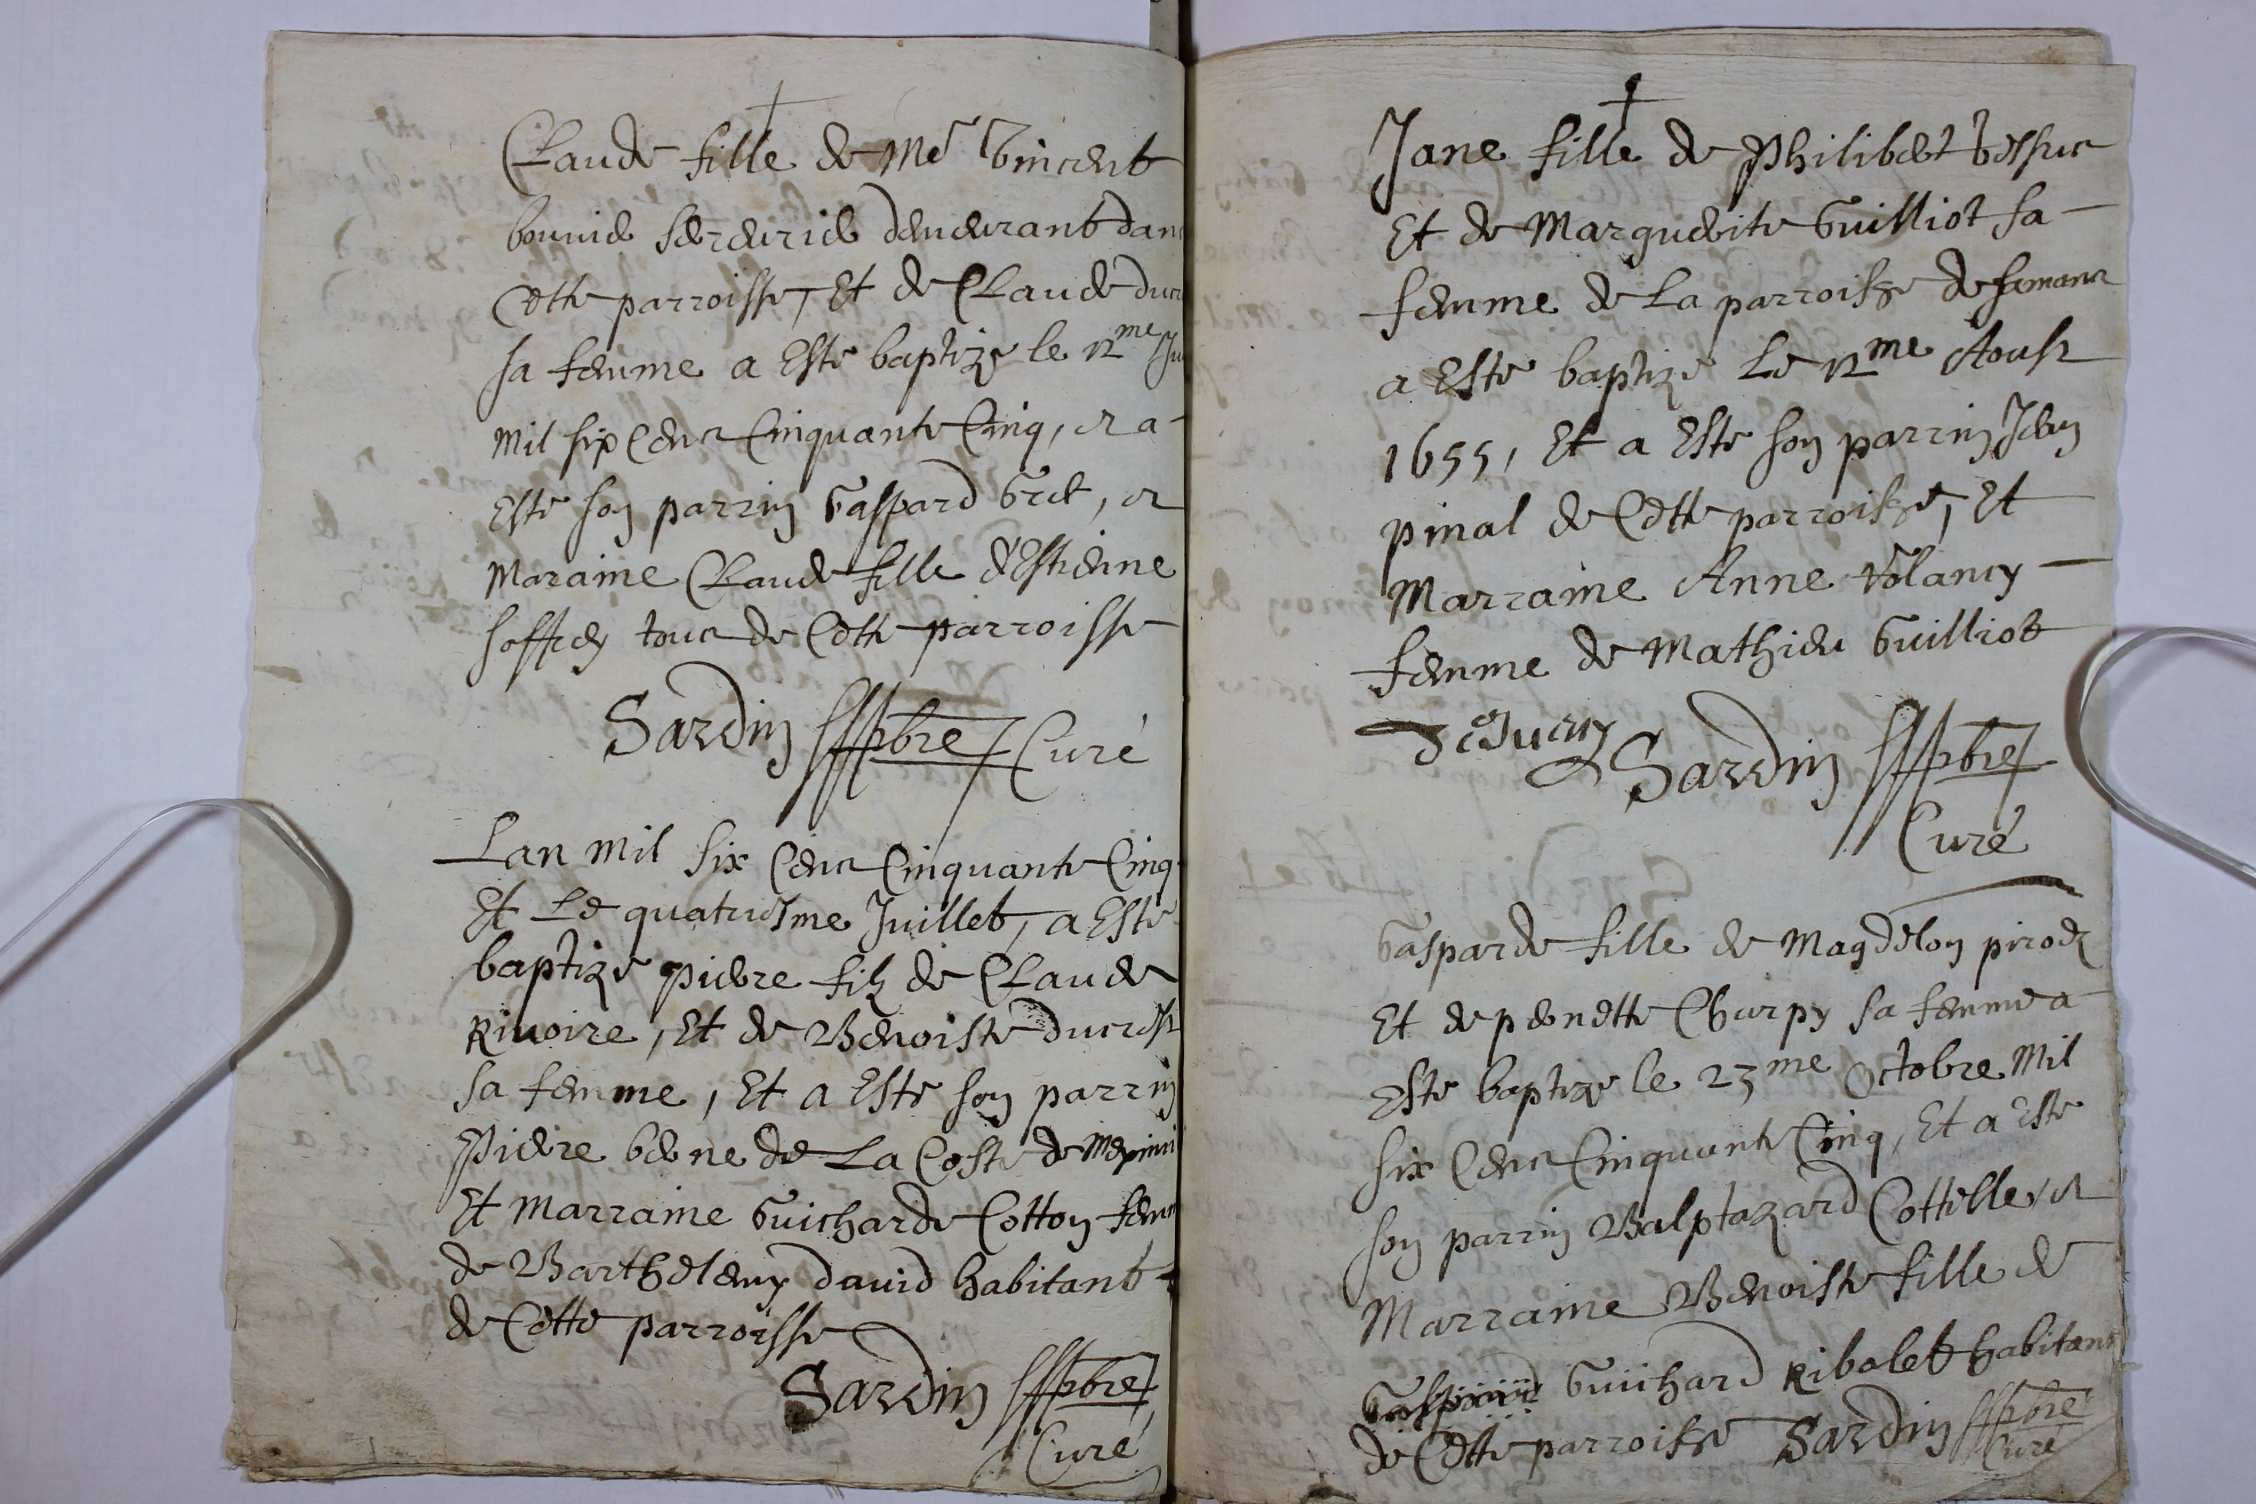 Claude fille de Me Vincent
bouuie demeurant dans
Cette parroisse, Et de Claude
sa femme a Este baptize le 12me
Mil six Cens Cinquante Cinq, et a
Este son parrin Gaspard Gret, et
Maraine Claude fille d'Estienne
soffrey tous de Cette parroisse
Sardin pbre Curé
Lan Mil six Cens Cinquante Cinq
Et Le quatriesme Juillet, a Este
baptize pierre filz de Claude
Riuoire, Et de Benoiste ducrest
sa femme, Et a Este son parrin
Pierre de La Coste de
Et Marraine Guicharde Cotton
de Barthelemy dauid habitant
de Cette parroisse
Sardin pbre
Curé
Jane fille de Philibert
Et de Marguerite Guilliot sa
femme de La parroisse de
a Este baptize Le 12me Aoust
1655, Et a Este son parrin Jean
pinal de Cette parroisse, Et
Marraine Anne Volancy
femme de Mathieu Guilliot
Sardin pbre
Curé
Gasparde fille de Magdelon
Et de pernette Charpy sa femme a
Este baptize le 23me Octobre Mil
six Cens Cinquante Cinq, Et a Este
son parrin Balptazard Cottille et
Marraine Benoiste fille de
Guichard Ribolet habitant
de Cette parroisse Sardin pbre
Curé